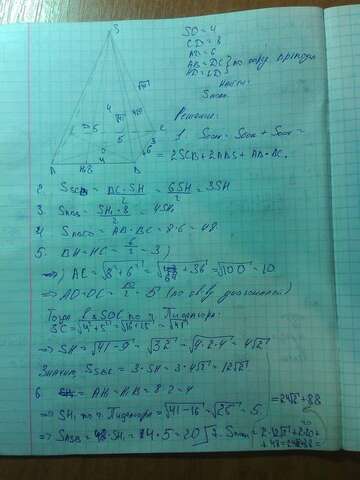 S
SO = 4
CD = 8
AD = 6
AB = DC } по св-ву прямоуг
AD =
Найти:
Sполн.
Решение:
1. Sполн = Sбок + Sосн =
= 2SCB + 2ABS + AB · BC.
2. SSCB = BC · SH / 2 = 6SH / 2 = 3SH
3. SABS = SH₁ · 8 / 2 = 4SH₁
4. SABCD = AB · BC = 8 · 6 = 48
5. BH = HC = 6/2 = 3
⇒ AC = √8² + 6² = √64 + 36 = √100 = 10
⇒ AO = OC = 10/2 = 5 (по св-ву диагоналей)
Тогда в SOC по т. Пифагора:
SC = √4² + 5² = √16 + 25 = √41
⇒ SH = √41 - 9 = √32 = √4 · 2 · 4 = 4√2
Значит, SSBC = 3 · SH = 3 · 4√2 = 12√2
6. AH₁ = H₁B = 8 : 2 = 4
⇒ SH₁ по т. Пифагора = √41 - 16 = √25 = 5
⇒ SASB = 4 · SH₁ = 4 · 5 = 20
7. Sполн = 2 · 12√2 + 2 · 20 +
+ 48 = 24√2 + 88
= 24√2 + 88